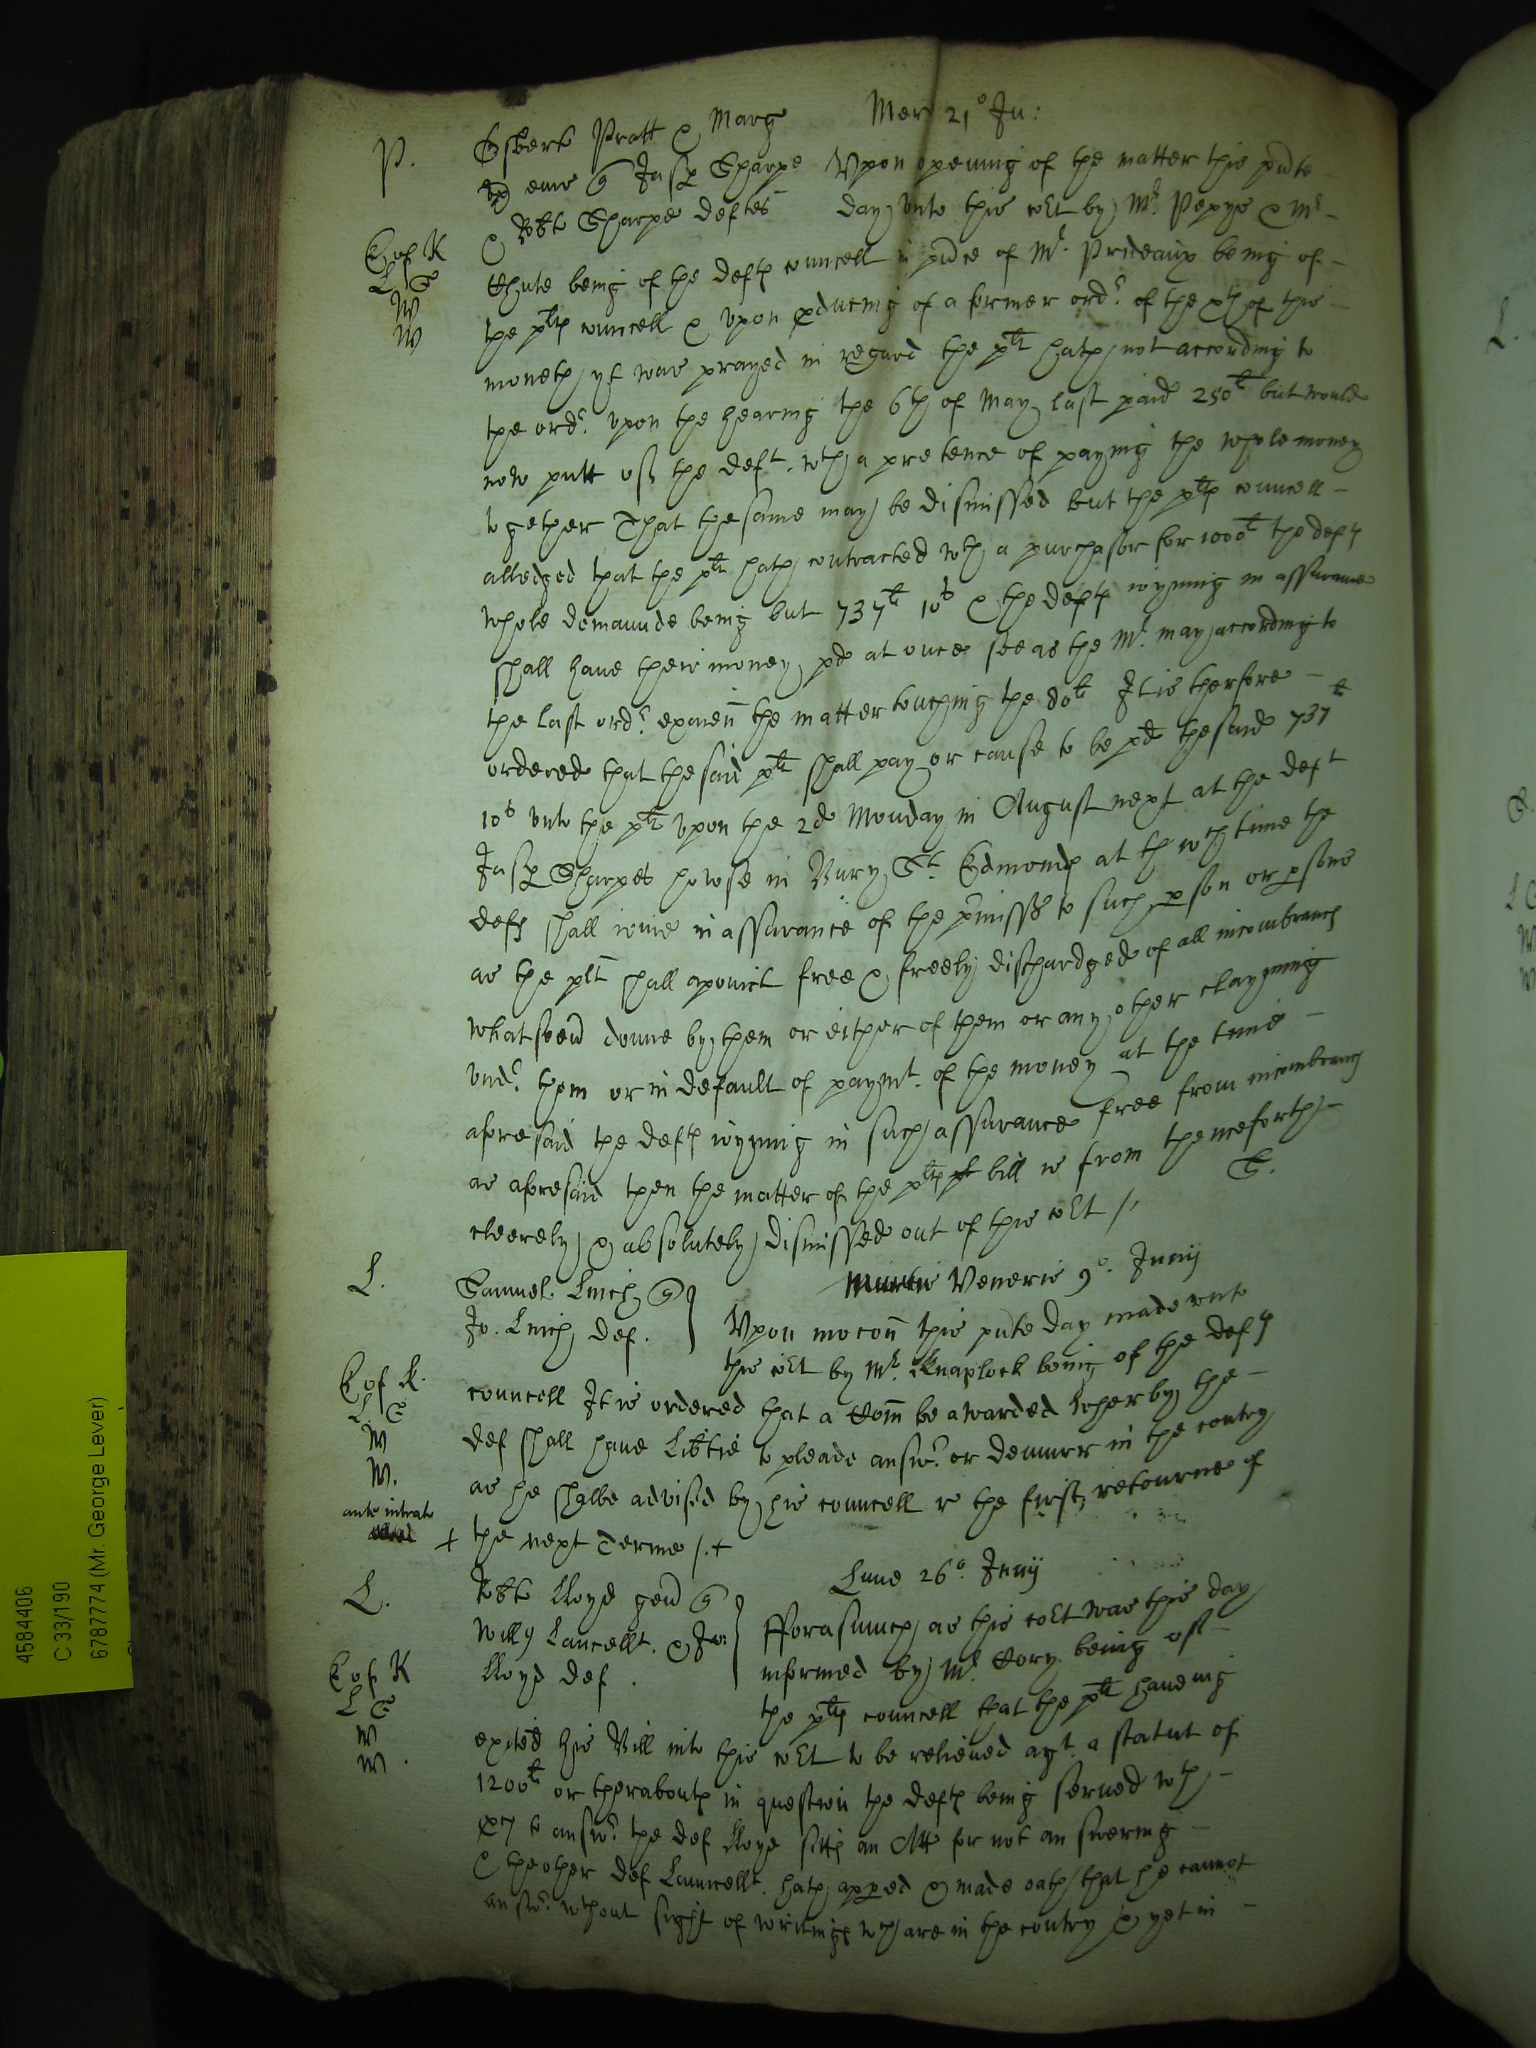 Mer 21° Ju:
P.
Osbert Pratt & Marg
ux eius q Jasp Sharpe Vpon openinig of the matter this pnte
& Robte Sharpe deftes day vnto this court by Mr. Pepys & Mr
E of K
L S
W
W
Chute being of the deftes councell in pnce of Mr. Prideaux being of
the pltes councell & vpon producing of a former ordr. of the xth of this
moneth, yt was prayed in regard the plt hath not according to
the ordr. vpon the hearing the 6th of May last paid 250li but would
now putt off the deft. wth a pretence of paying the whole money
together That the same may be dismissed but the pltes councell
alledged that the plt hath contracted wth a purchasor for 1000li the deftes
whole demaunde being but 737li 10s & the deftes ioyning in assurance
shall have their money pd at once soe as the Mr. may according to
the last ordr. examen the matter touching the 80li It is therfore
ordered that the said plt shall pay or cause to be pd the said 737li
10s vnto the plt vpon the 2d Monday in August next at the deft
Jasp Sharpes howse in Bury St. Edmonds at wch time the
deftes shall ioine in assurance of the pmisses to such pson or psons
as the plt shall apoint free & freely dischardged of all incombrances
whatsoeu donne by them or either of them or any other clayming
vndr. them or in default of paymt. of the money at the time
aforesaid the deftes ioyning in such assurance free from incombrances
as aforesaid then the matter of the pltes bill is from thenceforth
cleerely & absolutely dismissed out of this court //
S.
L.
Samuel Linch q
Jo. Linch def.
Veneris 9°. Junij
Vpon mocon this pnte day made vnto
this court by Mr. Knaplock being of the deftes
E of K.
L S
W
W.
councell It is ordered that a Com be awarded wherby the
def shall have Libtie to pleade answr. or demurr in the contry
as he shalbe advised by his councell r the first retourne of
ante intrat
+ the next Terme /.+
L.
Robte Lloyd gen q
Willm Lancellt. & Jo:
Lloyd def.
Lune 26°. Junij
Fforasmuch as this court was this day
informed by Mr. Cory being of
the pltes councell that the plt haveing
E of K
L S
W
W.
exhited his Bill into this court to be relieued agt. a statut of
1200li or therabouts in question the deftes being serued wth
pces to answr. the def Lloyd sitts an Att for not answering
& the other def Launcellt. hath apped & made oath that he cannot
answr. wthout sight of writings wch are in the contry & yet in
4584406
C 33/190
6787774 (Mr. George Lever)